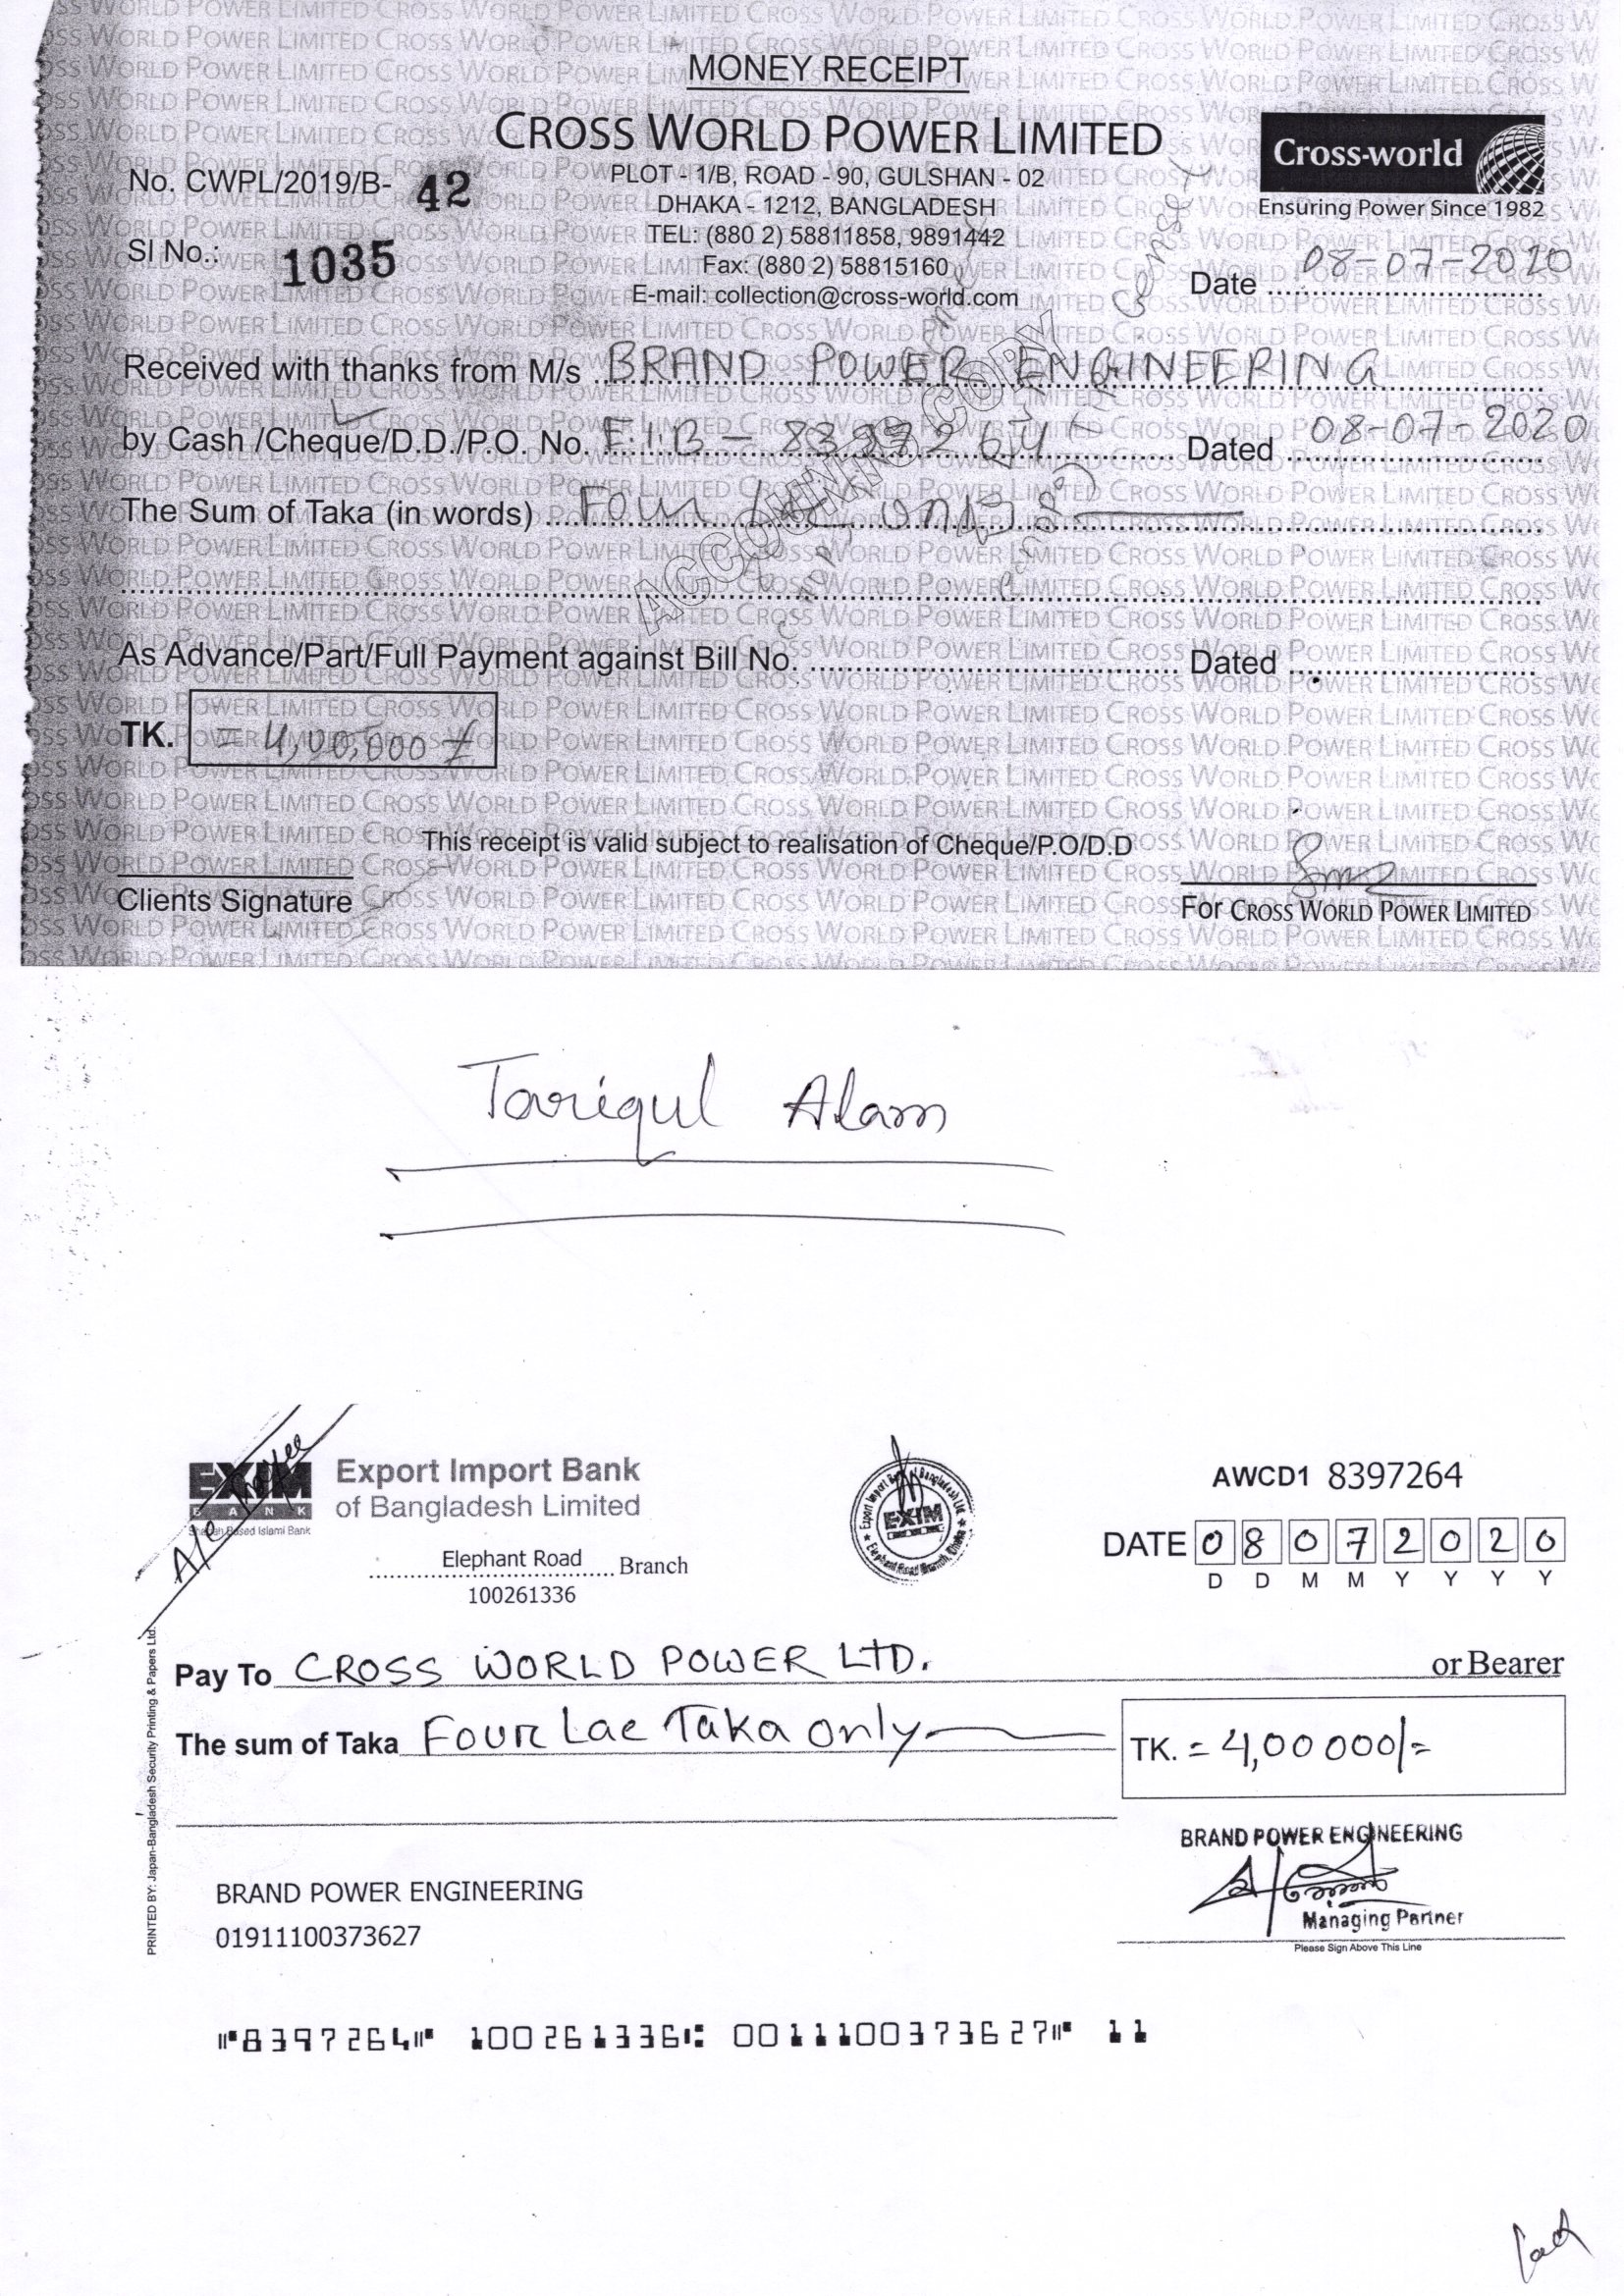 MONEY RECEIPT
CROSS WORLD POWER LIMITED
Cross-world
Ensuring Power Since 1982
No. CWPL/2019/B- 42
PLOT - 1/B, ROAD - 90, GULSHAN - 02
DHAKA - 1212, BANGLADESH
Sl No.: 1035
TEL: (880 2) 58811858, 9891442
Fax: (880 2) 58815160
E-mail: collection@cross-world.com
Date 08-07-2020
Received with thanks from M/s BRAND POWER ENGINEERING
by Cash /Cheque/D.D./P.O. No. Dated 08-07-2020
The Sum of Taka (in words) Four only
ACCOUNTS COPY
As Advance/Part/Full Payment against Bill No. Dated
TK. = 4,00,000/
This receipt is valid subject to realisation of Cheque/P.O/D.D
Clients Signature
For CROSS WORLD POWER LIMITED
Tariqul Alam
A/c Payee
EXIM
BANK
Shariah Based Islami Bank
Export Import Bank
of Bangladesh Limited
Elephant Road Branch
100261336
EXIM
AWCD1 8397264
DATE 08072020
D D M M Y Y Y Y
Pay To CROSS WORLD POWER LTD. or Bearer
The sum of Taka Four Lac Taka only
TK. = 4,00000/=
BRAND POWER ENGINEERING
Managing Partner
Please Sign Above This Line
BRAND POWER ENGINEERING
01911100373627
PRINTED BY: Japan-Bangladesh Security Printing & Papers Ltd.
8397264 100261336 001110037 3627 11